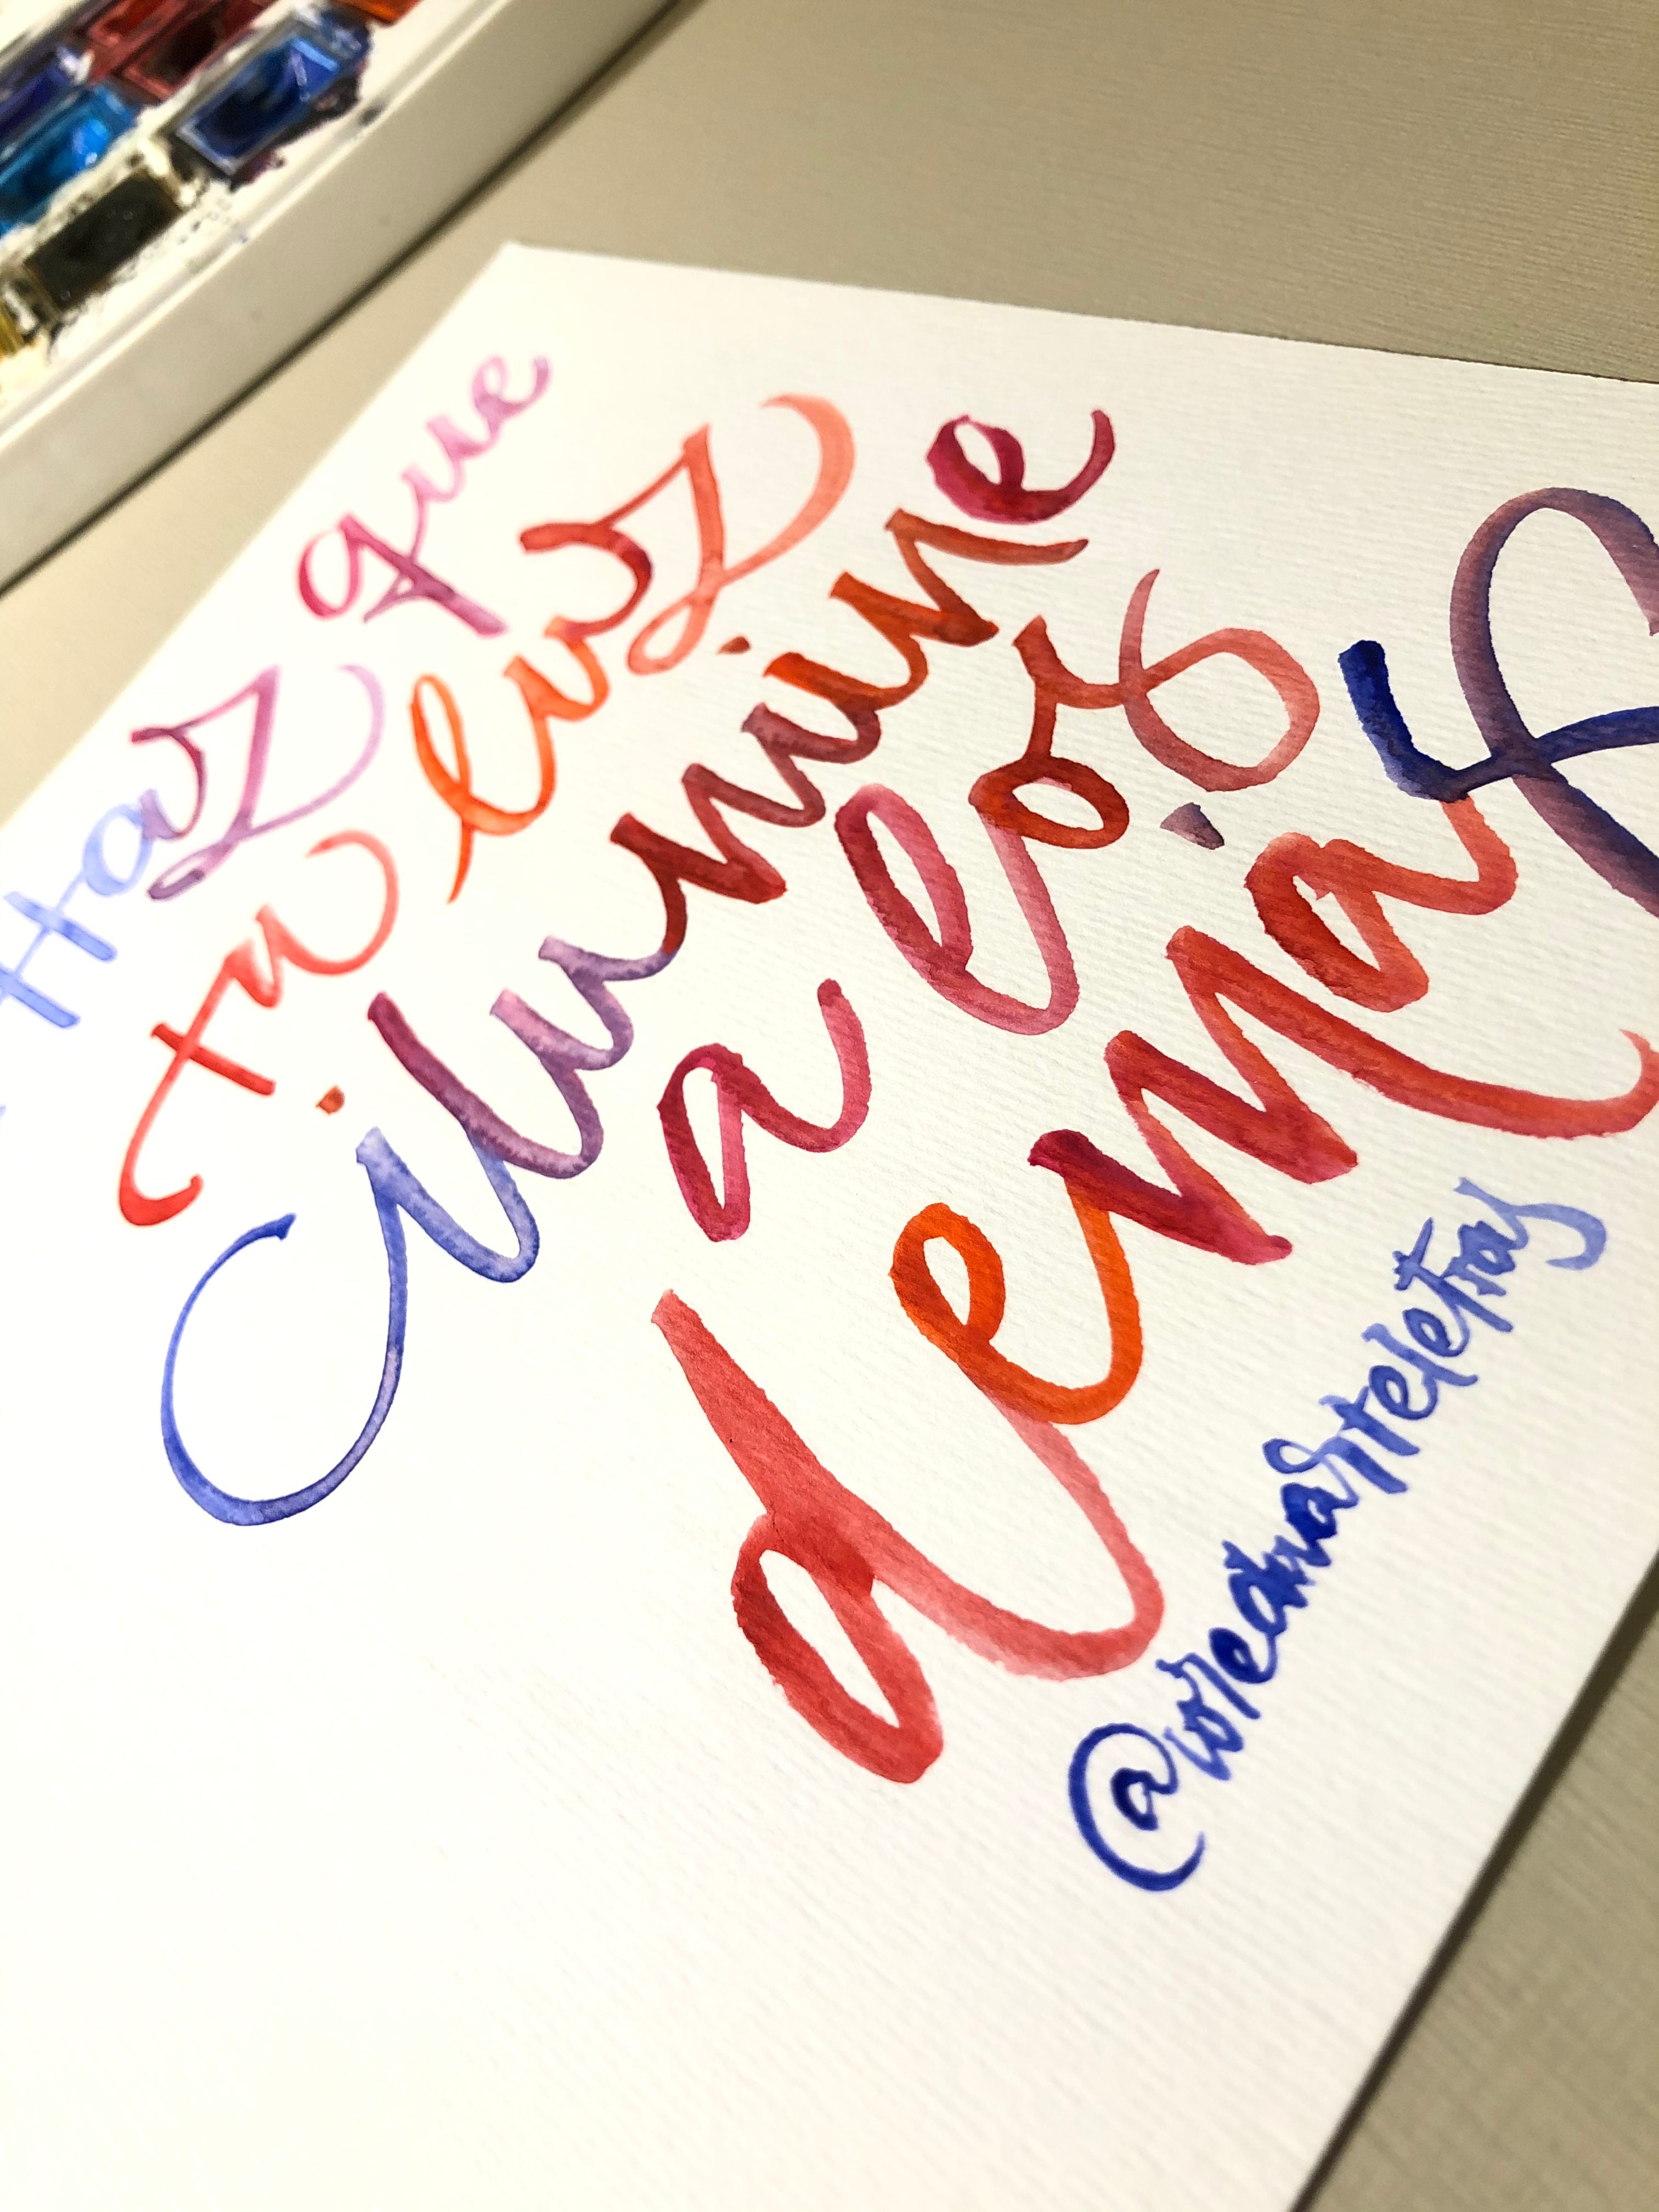 Haz que
tu luz
ilumine
a los
demás
@wreamarteletras